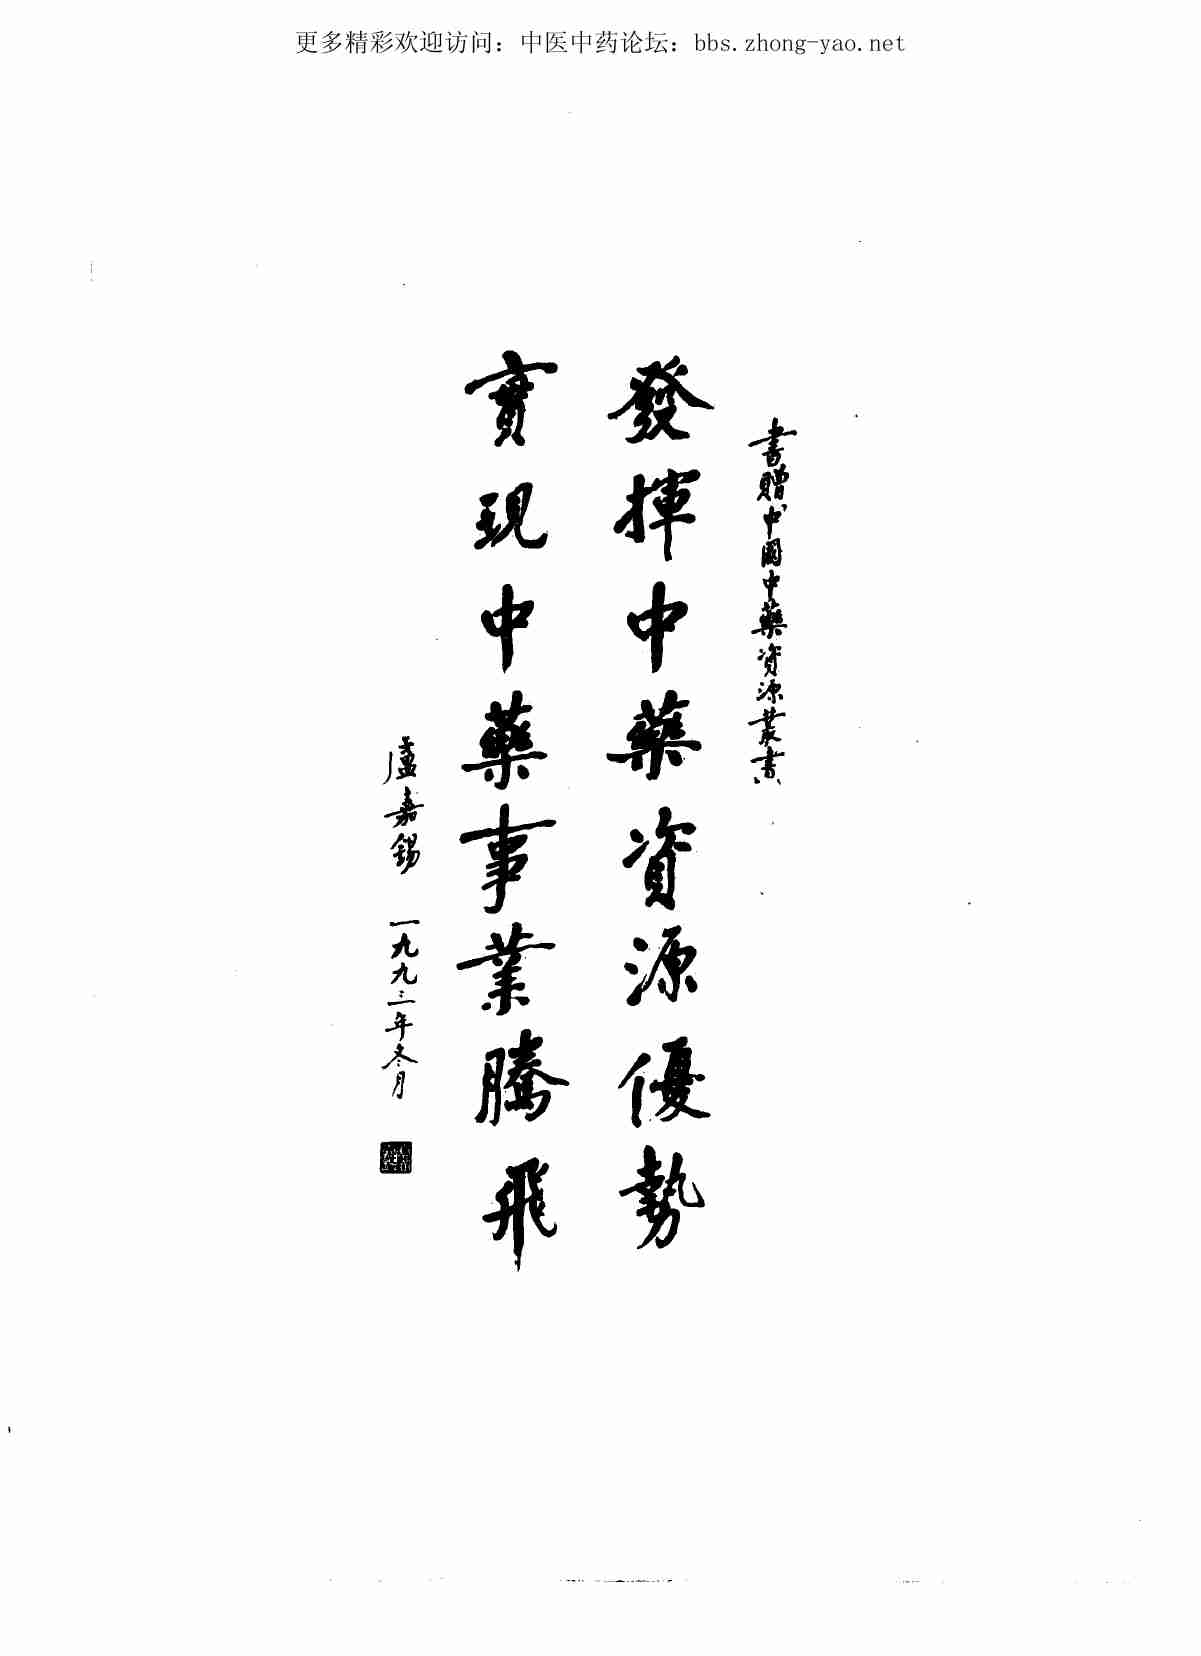 更多精彩欢迎访问：中医中药论坛：bbs.zhong-yao.net
書贈中國中藥資源叢書
發揮中藥資源優勢
實現中藥事業騰飛
盧嘉錫 一九九三年冬月